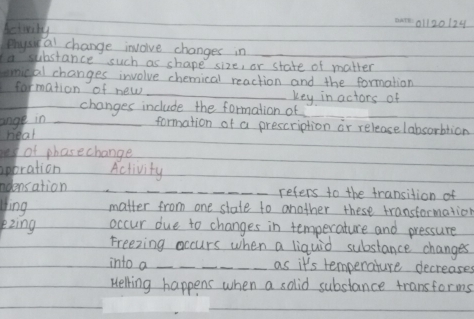 DATE: 01/20/24
Activity
Physical change involve changes in ___________
a substance such as shape size, or state of matter
emical changes involve chemical reaction and the formation
formation of new ___________ key in actors of
___________ changes include the formation of
ange in ___________ formation of a prescription or release/absorbtion
heat
es of phase change
aporation Activity
ndensation ___________ refers to the transition of
lting matter from one state to another these transformation
ezing occur due to changes in temperature and pressure
Freezing occurs when a liquid substance changes
into a ___________ as it's temperature decreases
Melting happens when a solid substance transforms